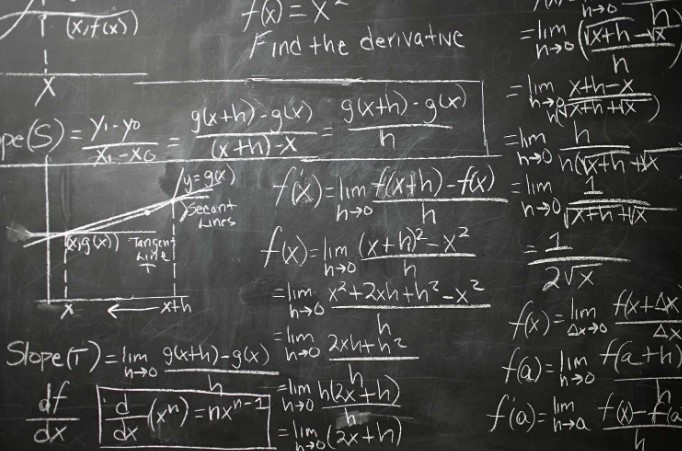 (x, f(x))
x
f(x) = x²
Find the derivative
ope(S) = y₁-y₀/x₁-x₀ = g(x+h)-g(x)/(x+h)-x = g(x+h)-g(x)/h
y=g(x)
Secant
Lines
(x,g(x))
Tangent
Line
T
x ← x+h
Slope(T) = lim h→0 g(x+h)-g(x)/h
df/dx
d/dx (xⁿ) = nxⁿ⁻¹
f'(x) = lim h→0 f(x+h)-f(x)/h
f(x) = lim h→0 (x+h)²-x²/h
= lim h→0 x²+2xh+h²-x²/h
= lim h→0 2xh+h²/h
= lim h→0 h(2x+h)/h
= lim h→0 (2x+h)
h→0 h
= lim h→0 (√x+h-√x/h
= lim h→0 x+h-x/h(√x+h+√x)
= lim h→0 h/h(√x+h+√x
= lim h→0 1/√x+h+√x
= 1/2√x
f(x) = lim Δx→0 f(x+Δx/Δx
f(a) = lim h→0 f(a+h)/h
f'(a) = lim h→a f(x)-f(a